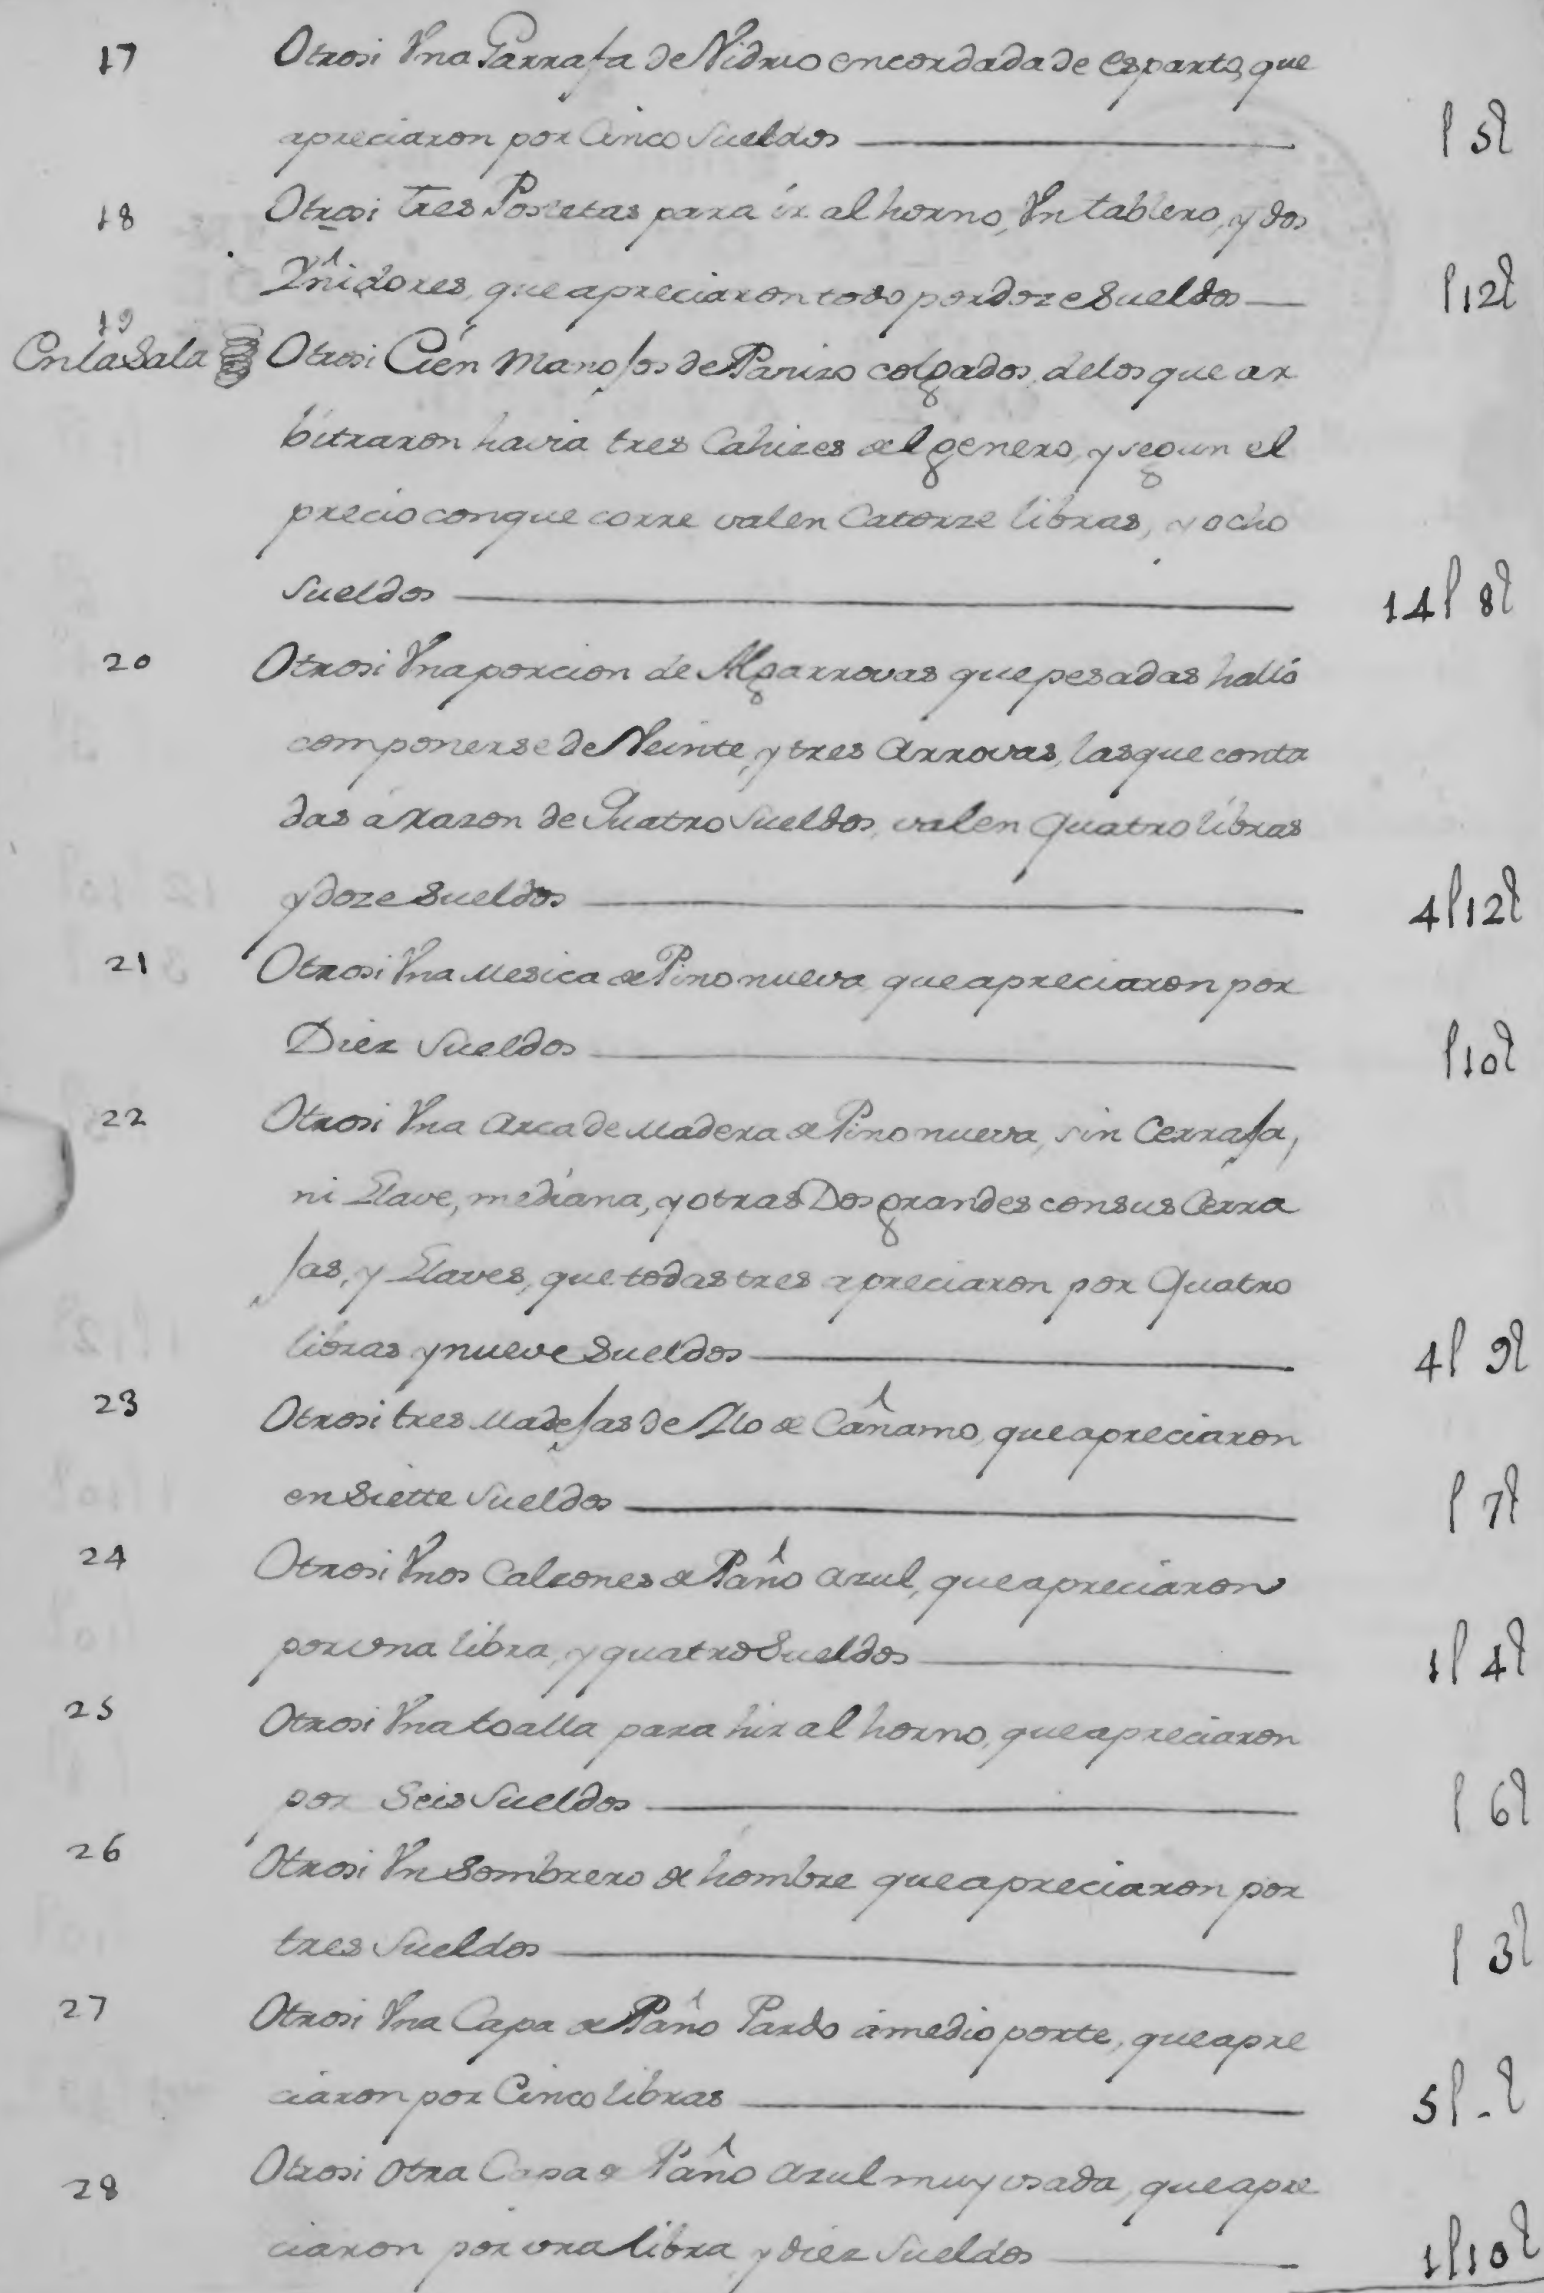 17 Otrosi Vna Garrafa de Vidrio encordada de esparto, que
apreciaron por Cinco Sueldos — l 5 s
18 Otrosi tres Postetas para ir al horno, Vn tablero, y dos
Vñidores, que apreciaron todo por doze Sueldos — l 12 s
19 En la Sala Otrosi Cien Manojos de Panizo colgados, de los que ar
bitraron havia tres Cahizes del genero, y segun el
precio con que corre valen Catorze libras, y ocho
Sueldos — 14 l 8 s
20 Otrosi Vna porcion de Algarrovas que pesadas halló
componerse de Veinte, y tres Arrovas, las que conta
das á razon de Quatro Sueldos, valen quatro libras
y doze Sueldos — 4 l 12 s
21 Otrosi Vna Mesica de Pino nueva, que apreciaron por
Diez Sueldos — l 10 s
22 Otrosi Vna Arca de Madera de Pino nueva, sin Cerraja,
ni Llave, mediana, y otras Dos grandes con sus Cerra
jas, y Llaves, que todas tres apreciaron por Quatro
libras y nueve Sueldos — 4 l 9 s
23 Otrosi tres Madejas de Ilo de Cañamo, que apreciaron
en Siette Sueldos — l 7 s
24 Otrosi Vnos Calzones de Paño azul, que apreciaron
por vna libra, y quatro Sueldos — 1 l 4 s
25 Otrosi Vna toalla para hir al horno, que apreciaron
por Seis Sueldos — l 6 s
26 Otrosi Vn Sombrero de hombre que apreciaron por
tres Sueldos — l 3 s
27 Otrosi Vna Capa de Paño Pardo á medio porte, que apre
ciaron por Cinco libras — 5 l - s
28 Otrosi Otra Capa de Paño Azul muy vsada, que apre
ciaron por vna libra, y diez Sueldos — 1 l 10 s